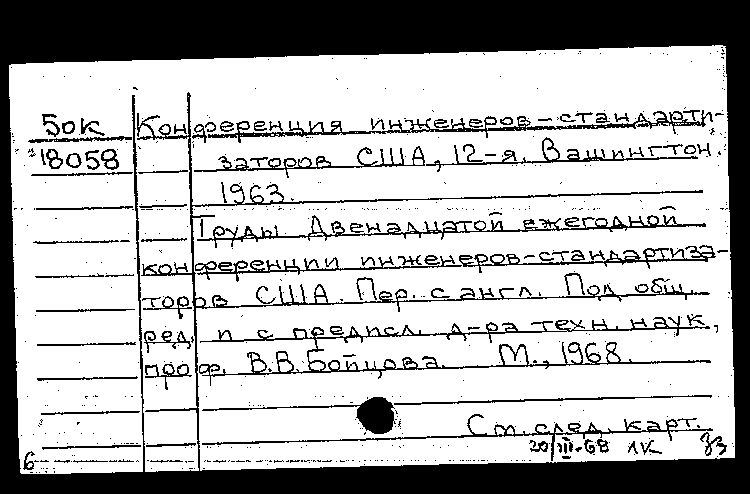 50к Конференция инженеров-стандарти-
18058 заторов США, 12-я. Вашингтон.
1963.
Труды Двенадцатой ежегодной
конференции инженеров-стандартиза-
торов США. Пер. с англ. Под общ.
ред. и с предисл. д-ра техн. наук,
проф. В.В. Бойцова. М., 1968.
См. след. карт.
6 20/III-68 лк